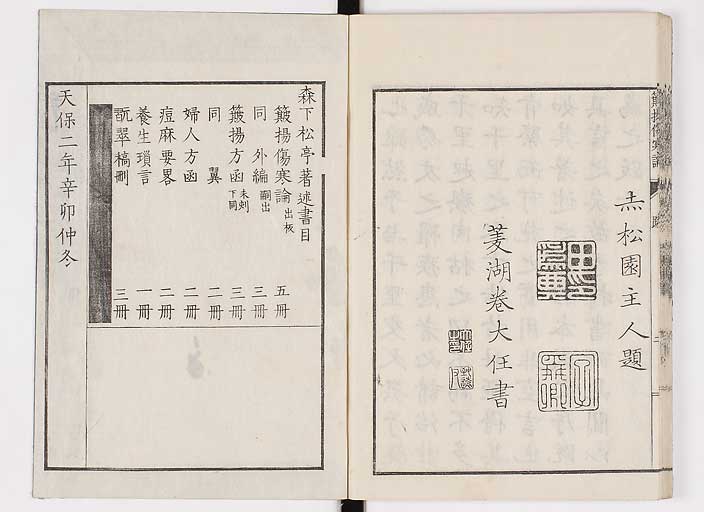 簸揚傷寒論
跋
赤松園主人題
菱湖卷大任書
森下松亭著述書目
簸揚傷寒論 出板 五冊
同 外編 嗣出 三冊
簸揚方函 未刻下同 三冊
同 翼 二冊
婦人方函 二冊
痘麻要畧 二冊
養生瑣言 一冊
翫翠槁刪 三冊
天保二年辛卯仲冬